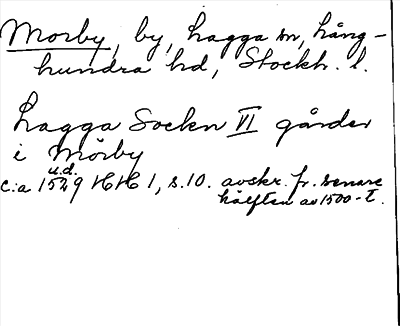 Morby, by, Lagga sn, Lång-
hundra hd, Stockh. l.
Lagga Sockn VI gårder
i Mörby
u.d.
c:a 1529 HH 1, s. 10. avskr. fr. senare
hälften av 1500-t.